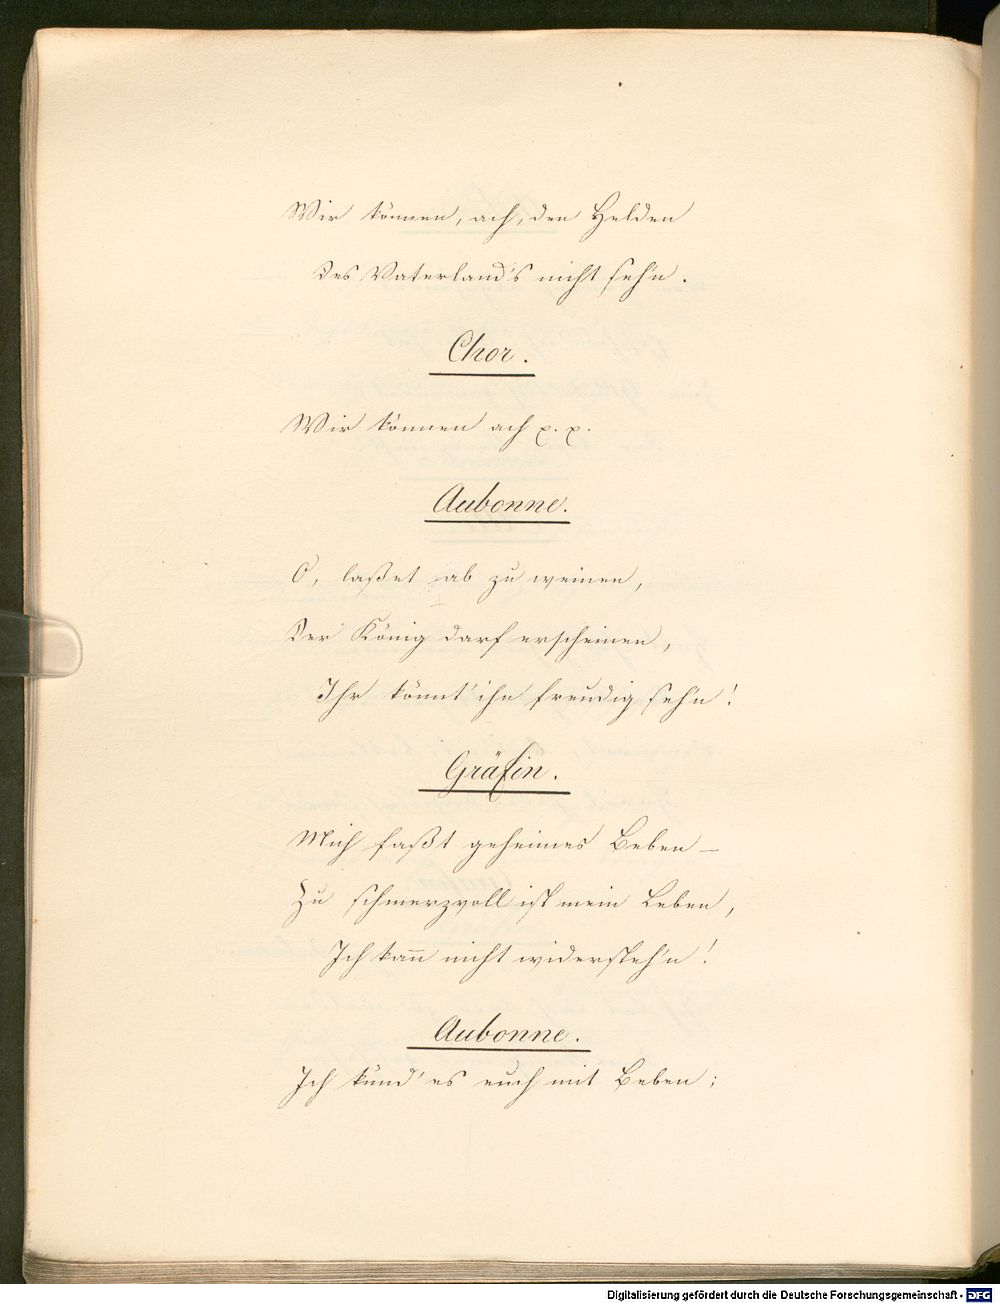 Wir können, ach, den Helden
Des Vaterland's nicht seh'n.
Chor.
Wir können ach p. p.
Aubonne.
O, laßet ab zu weinen,
Der König darf erscheinen,
Ihr könnt' ihn freudig seh'n!
Gräfin.
Mich faßt geheimes Beben –
Zu schmerzvoll ist mein Leben,
Ich kan̅n nicht widersteh'n!
Aubonne.
Ich künd' es euch mit Beben;
Digitalisierung gefördert durch die Deutsche Forschungsgemeinschaft - DFG